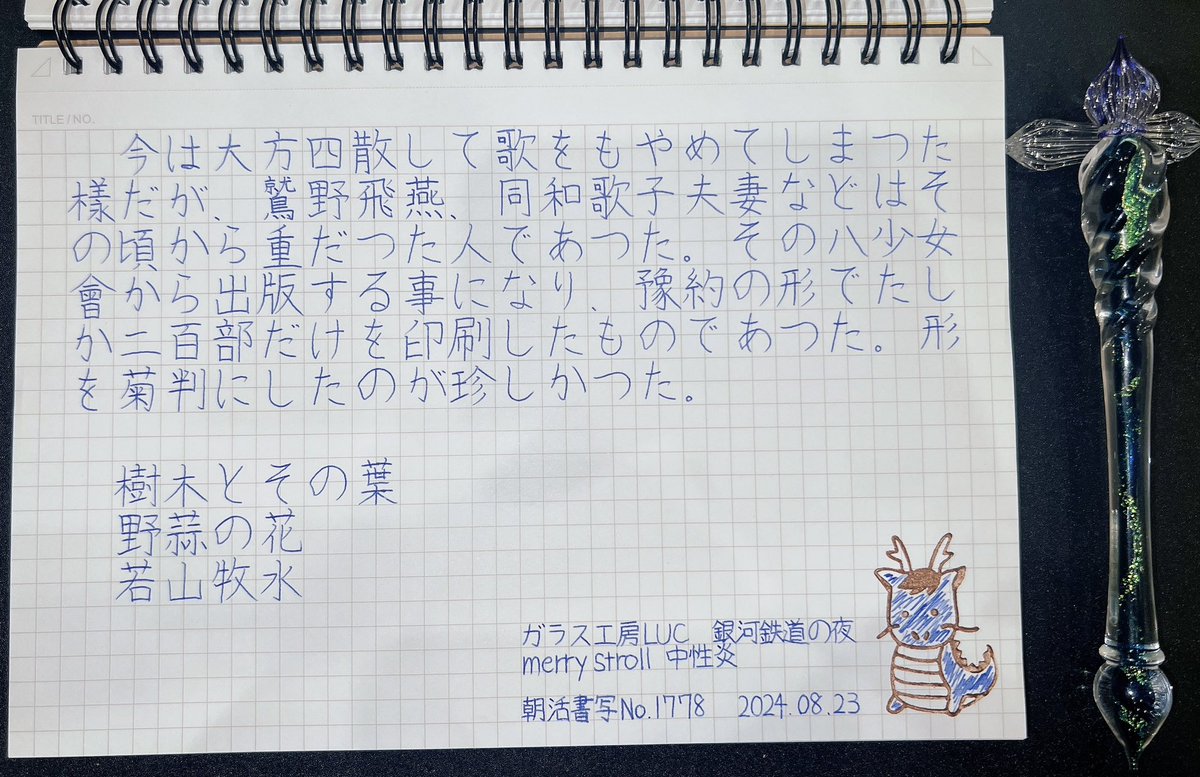 TITLE/NO.
今は大方四散して歌をもやめてしまつた
様だが、鷲野飛燕、同和歌子夫妻などはそ
の頃から重だつた人であつた。その八少女
會から出版する事になり、豫約の形でたし
か二百部だけを印刷したものであつた。形
を菊判にしたのが珍しかつた。
樹木とその葉
野蒜の花
若山牧水
ガラス工房LUC 銀河鉄道の夜
merry stroll 中性炎
朝活書写No.1778 2024.08.23